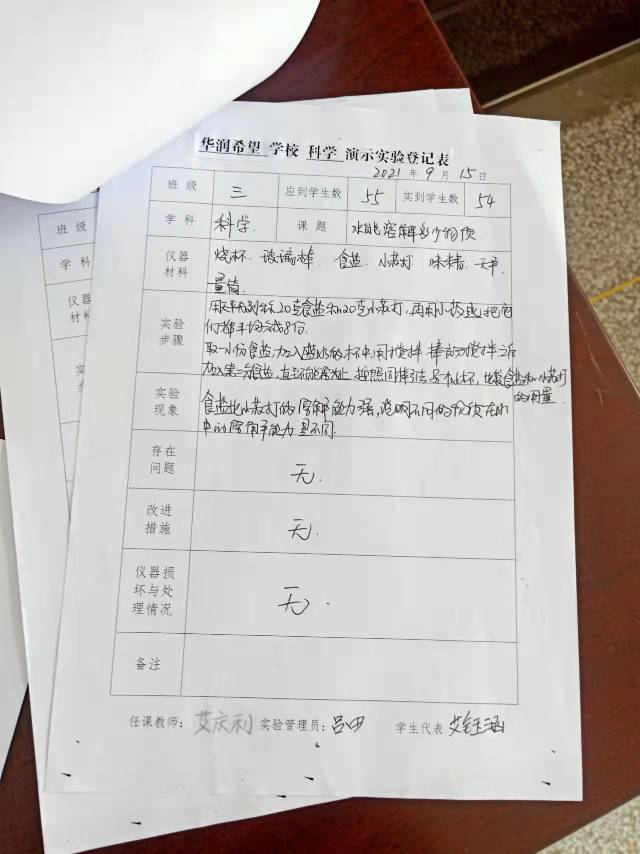 华润希望 学校 科学 演示实验登记表
2021 年 9 月 15 日
班级 三 应到学生数 55 实到学生数 54
学科 科学 课题 水能溶解多少物质
仪器材料 烧杯 玻璃棒 食盐 小苏打 味精 天平
量筒
实验步骤 用天平 20克食盐和20克小苏打, 把它
们都平均分成8份.
取一小份食盐,加入 的水中,用搅拌棒 搅拌 之后
加入第二份食盐, 直 按照同 食盐和小苏打
的用量
实验现象 食盐比小苏打的溶解能力强,说明不同的物质在水
中的溶解能力是不同
存在问题 无.
改进措施 无.
仪器损坏与处理情况 无.
备注
任课教师: 艾庆利 实验管理员: 吕田 学生代表 艾钰涵
班级
学科